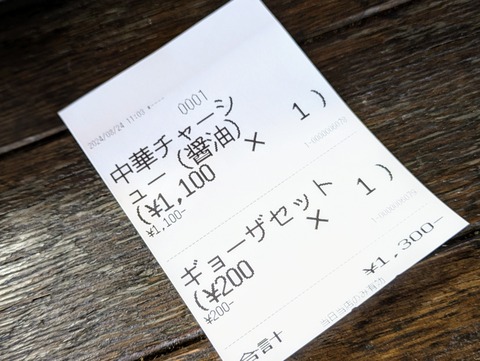 2024/08/24 11:03
0001
中華チャーシ
ュー（醤油）
(¥1,100 × 1)
¥1,100-
ギョーザセット
(¥200 × 1)
¥200-
合計 ¥1,300-